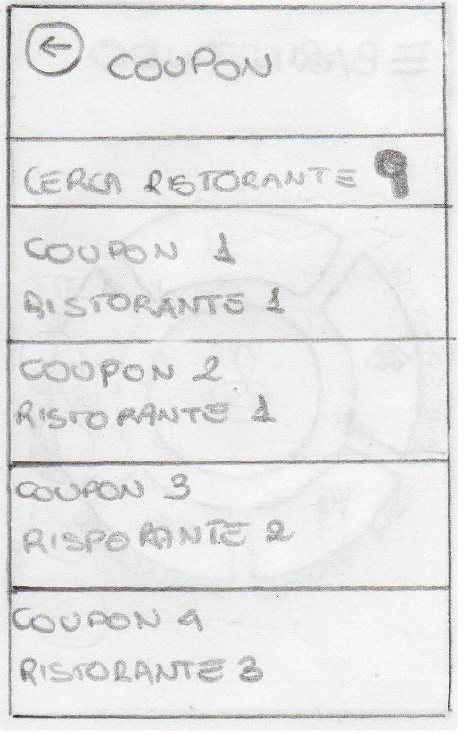 COUPON
CERCA RISTORANTE
COUPON 1
RISTORANTE 1
COUPON 2
RISTORANTE 1
COUPON 3
RISPORANTE 2
COUPON 4
RISTORANTE 3